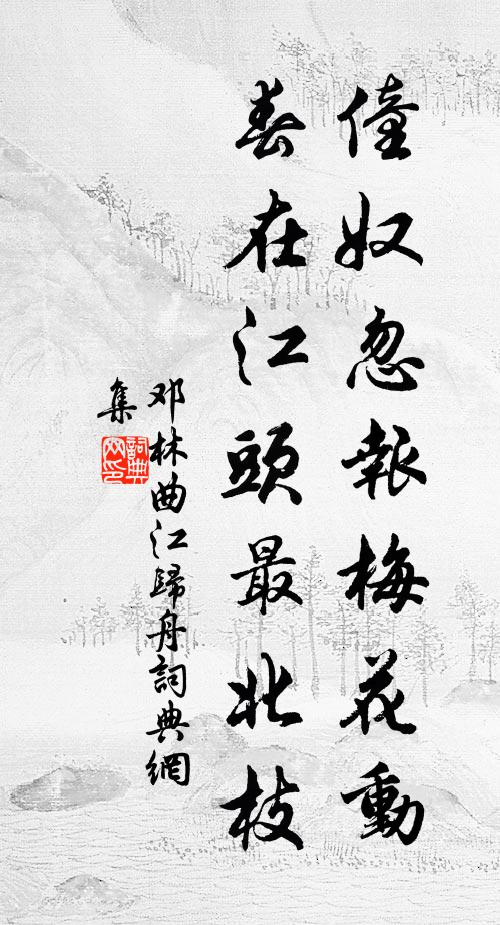 僮奴忽報梅花動
春在江頭最北枝
邓林曲江歸舟詞典網
集
詞典
网印